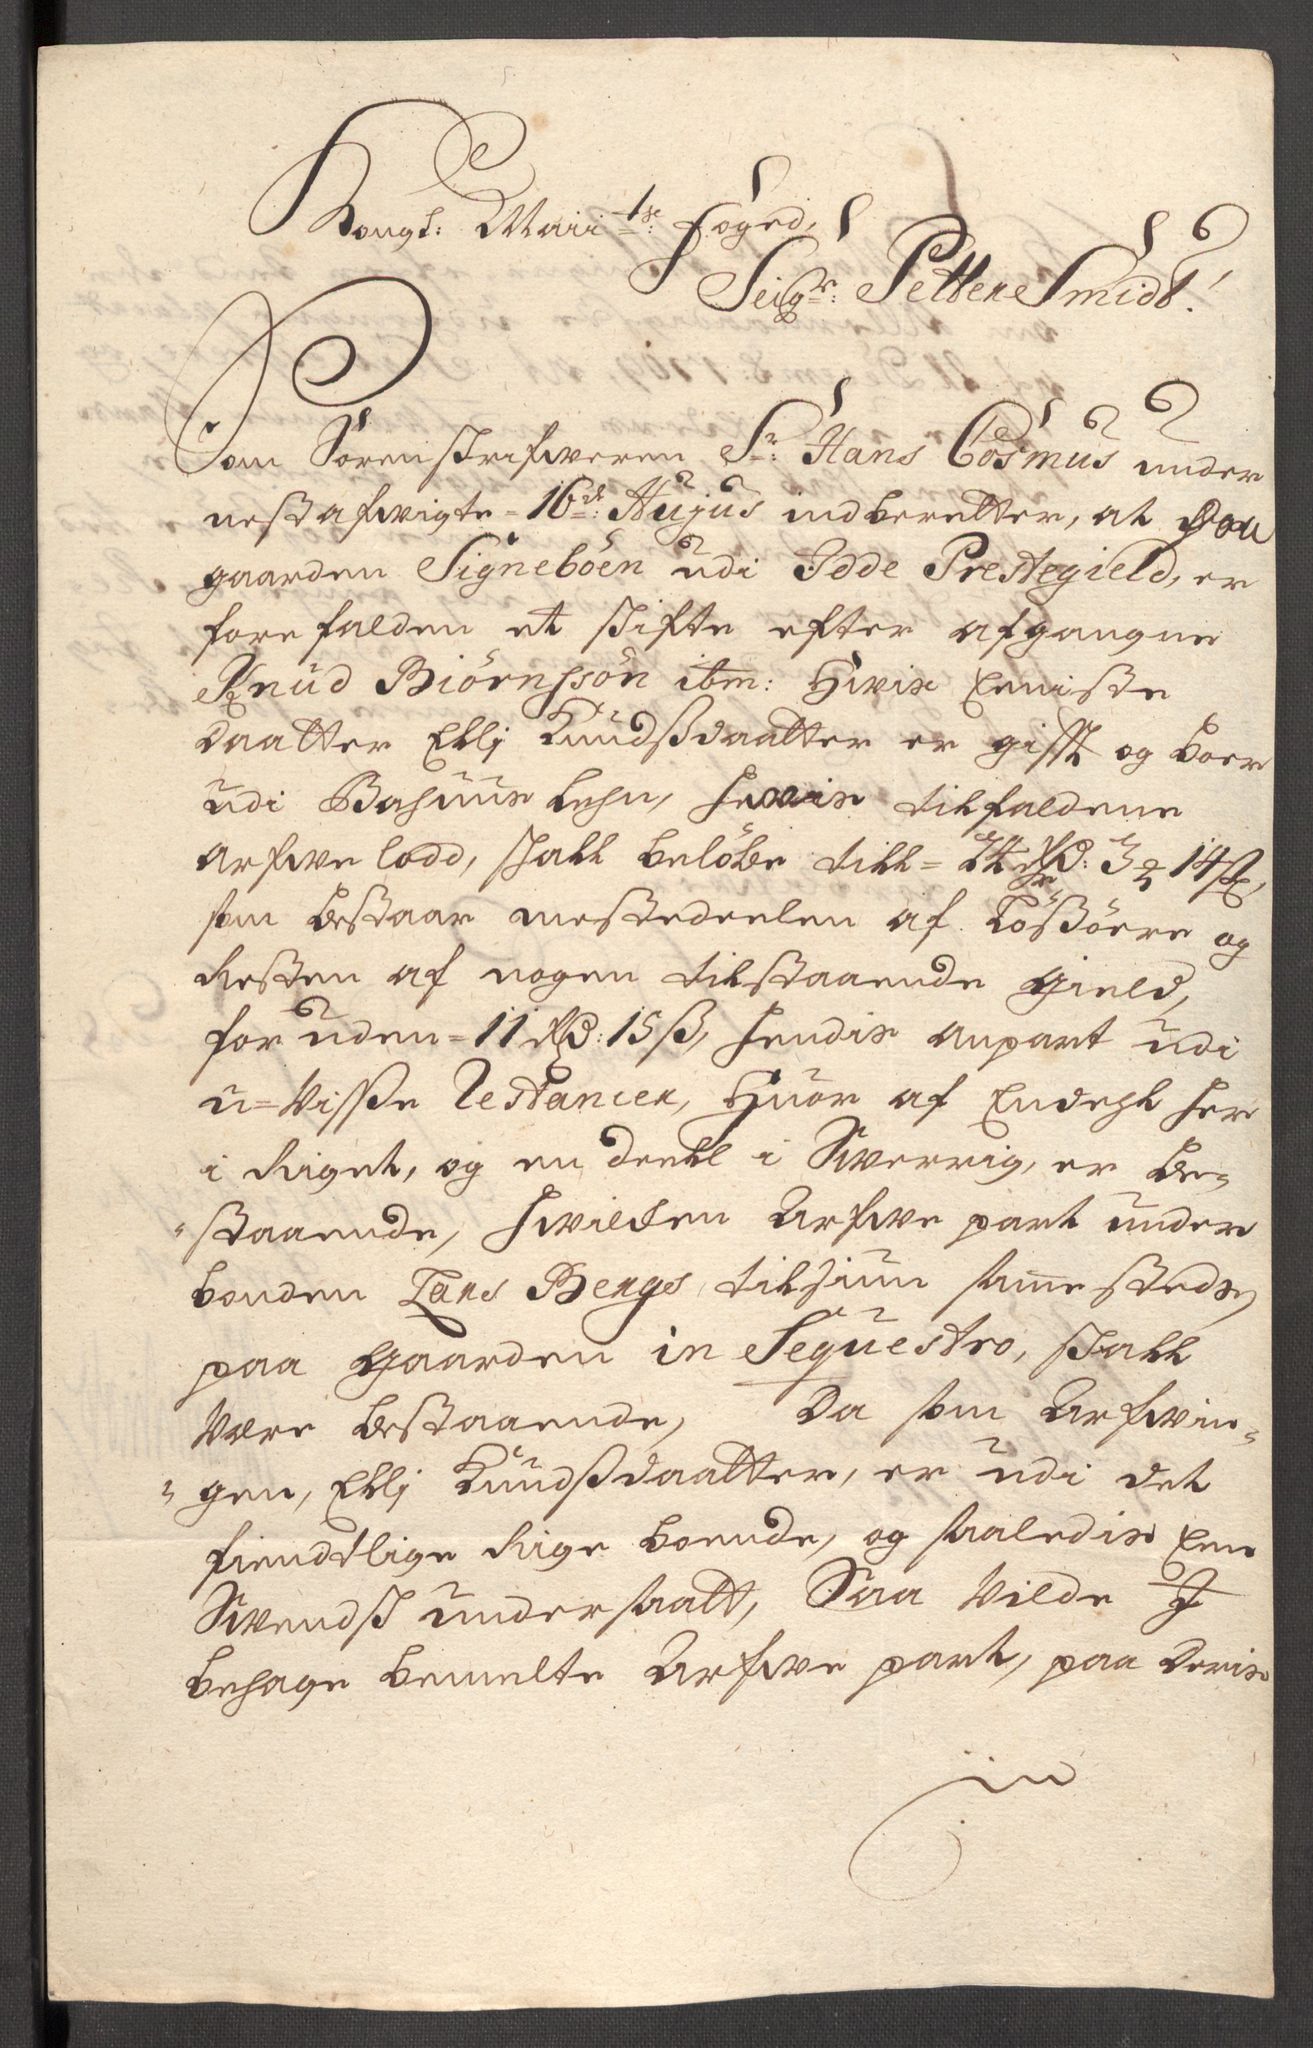 Kongl: Maii-ts: foged,
Seigr: Petter Smidt!
Som Sorenskrifweren Sr: Hans Cosmus under
nestafwigte = 16de: Augus indberetter, at paa
gaarden Signeböen udi Idde Prestegield, er
forefalden et skifte efter afgangne
Knud Biörnssön ibm: Hwis Eeniste
daatter Elli Knudsdaatter er gifft og boer
udi Bahuus Lehn, hwis tilfaldene
arfwe lodd, skall belöbe till = Rd: 3 14 s,
som bestaar mestedeelen af Lösöere og
Resten af nogen tilstaaende gield,
foruden = 11 Rd: 15 s, hendis anpart udi
u=visse Restancer, Huor af Endeel her
i Riget, og en deell i Swerrig, er be,
"staaende, hwilken Arfwe part under
bonden Lars Bergs tilsiun sammesteds,
paa gaarden in Sequestro, skall
være bestaaende, Da som Arfwin"
"gen, Elli Knudsdaatter, er udi det
fiendtlige Rige boende, og saaledis Een
Swendsk undersaatt, Saa vilde I
behage bemelte Arfwe part, paa Deris